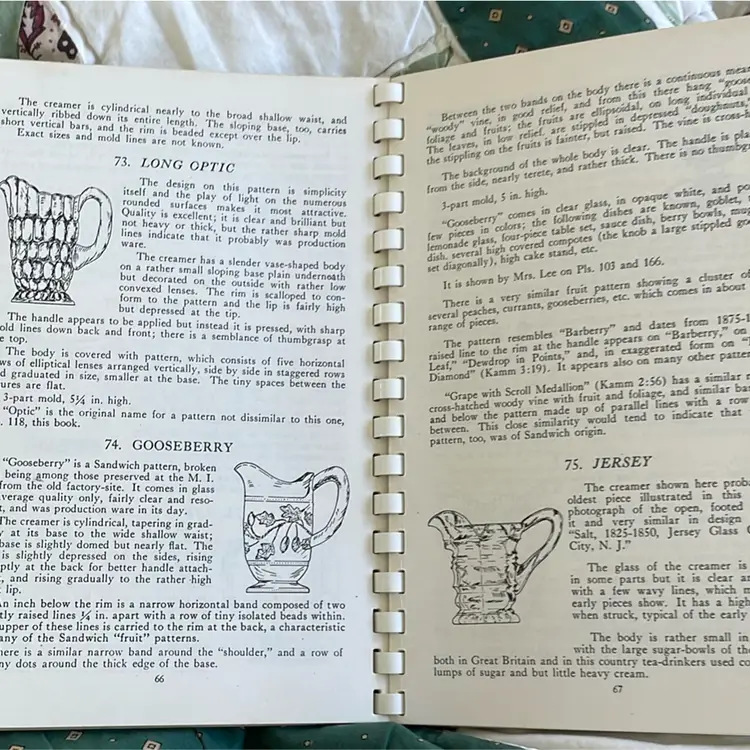 The creamer is cylindrical nearly to the broad shallow waist, and
vertically ribbed down its entire length. The sloping base, too, carries
short vertical bars, and the rim is beaded except over the lip.
Exact sizes and mold lines are not known.
73. LONG OPTIC
The design on this pattern is simplicity
itself and the play of light on the numerous
rounded surfaces makes it most attractive.
Quality is excellent; it is clear and brilliant but
not heavy or thick, but the rather sharp mold
lines indicate that it probably was production
ware.
The creamer has a slender vase-shaped body
on a rather small sloping base plain underneath
but decorated on the outside with rather low
convexed lenses. The rim is scalloped to con-
form to the pattern and the lip is fairly high
but depressed at the tip.
The handle appears to be applied but instead it is pressed, with sharp
old lines down back and front; there is a semblance of thumbgrasp at
e top.
The body is covered with pattern, which consists of five horizontal
ws of elliptical lenses arranged vertically, side by side in staggered rows
d graduated in size, smaller at the base. The tiny spaces between the
ures are flat.
3-part mold, 5¼ in. high.
"Optic" is the original name for a pattern not dissimilar to this one,
. 118, this book.
74. GOOSEBERRY
"Gooseberry" is a Sandwich pattern, broken
being among those preserved at the M. I.
from the old factory-site. It comes in glass
verage quality only, fairly clear and reso-
t, and was production ware in its day.
The creamer is cylindrical, tapering in grad-
y at its base to the wide shallow waist;
base is slightly domed but nearly flat. The
is slightly depressed on the sides, rising
ptly at the back for better handle attach-
, and rising gradually to the rather high
lip.
An inch below the rim is a narrow horizontal band composed of two
tly raised lines ¼ in. apart with a row of tiny isolated beads within.
upper of these lines is carried to the rim at the back, a characteristic
any of the Sandwich "fruit" patterns.
here is a similar narrow band around the "shoulder," and a row of
ny dots around the thick edge of the base.
66
Between the two bands on the body there is a continuous mean
"woody" vine, in good relief, and from this there hang "goose
foliage and fruits; the fruits are ellipsoidal, on long individual
The leaves, in low relief, are stippled in depressed "doughnuts,"
the stippling on the fruits is fainter, but raised. The vine is cross-h
The background of the whole body is clear. The handle is pla
from the side, nearly terete, and rather thick. There is no thumbgr
3-part mold, 5 in. high.
"Gooseberry" comes in clear glass, in opaque white, and po
few pieces in colors; the following dishes are known, goblet,
lemonade glass, four-piece table set, sauce dish, berry bowls, mu
dish, several high covered compotes (the knob a large stippled go
set diagonally), high cake stand, etc.
It is shown by Mrs. Lee on Pls. 103 and 166.
There is a very similar fruit pattern showing a cluster of
several peaches, currants, gooseberries, etc. which comes in about
range of pieces.
The pattern resembles "Barberry" and dates from 1875-1
raised line to the rim at the handle appears on "Barberry," on
Leaf," "Dewdrop in Points," and, in exaggerated form on "
Diamond" (Kamm 3:19). It appears also on many other pattern
"Grape with Scroll Medallion" (Kamm 2:56) has a similar n
cross-hatched woody vine with fruit and foliage, and similar ban
and below the pattern made up of parallel lines with a row
between. This close similarity would tend to indicate that
pattern, too, was of Sandwich origin.
75. JERSEY
The creamer shown here proba
oldest piece illustrated in this
photograph of the open, footed
it and very similar in design
"Salt, 1825-1850, Jersey Glass C
City, N. J."
The glass of the creamer is
in some parts but it is clear an
with a few wavy lines, which m
early pieces show. It has a high
when struck, typical of the early
The body is rather small in
with the large sugar-bowls of the
both in Great Britain and in this country tea-drinkers used co
lumps of sugar and but little heavy cream.
67